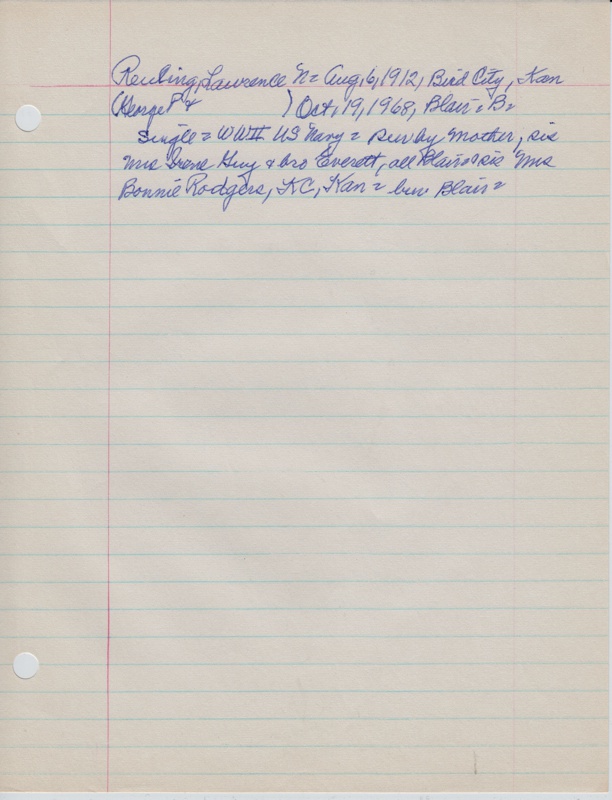 Reuling, Lawrence N = Aug, 6, 1912, Bird City, Kan
(George P &               ) Oct, 19, 1968, Blair = B =
Single = WWII US Navy = sur by Mother, sis
Mrs Irene Guy & bro Everett, all Blair & sis Mrs
Bonnie Rodgers, KC, Kan = bur Blair =